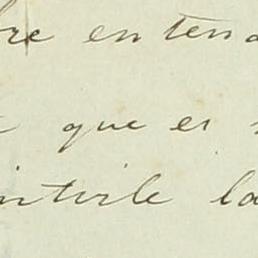 bre entend
que es
intirle la